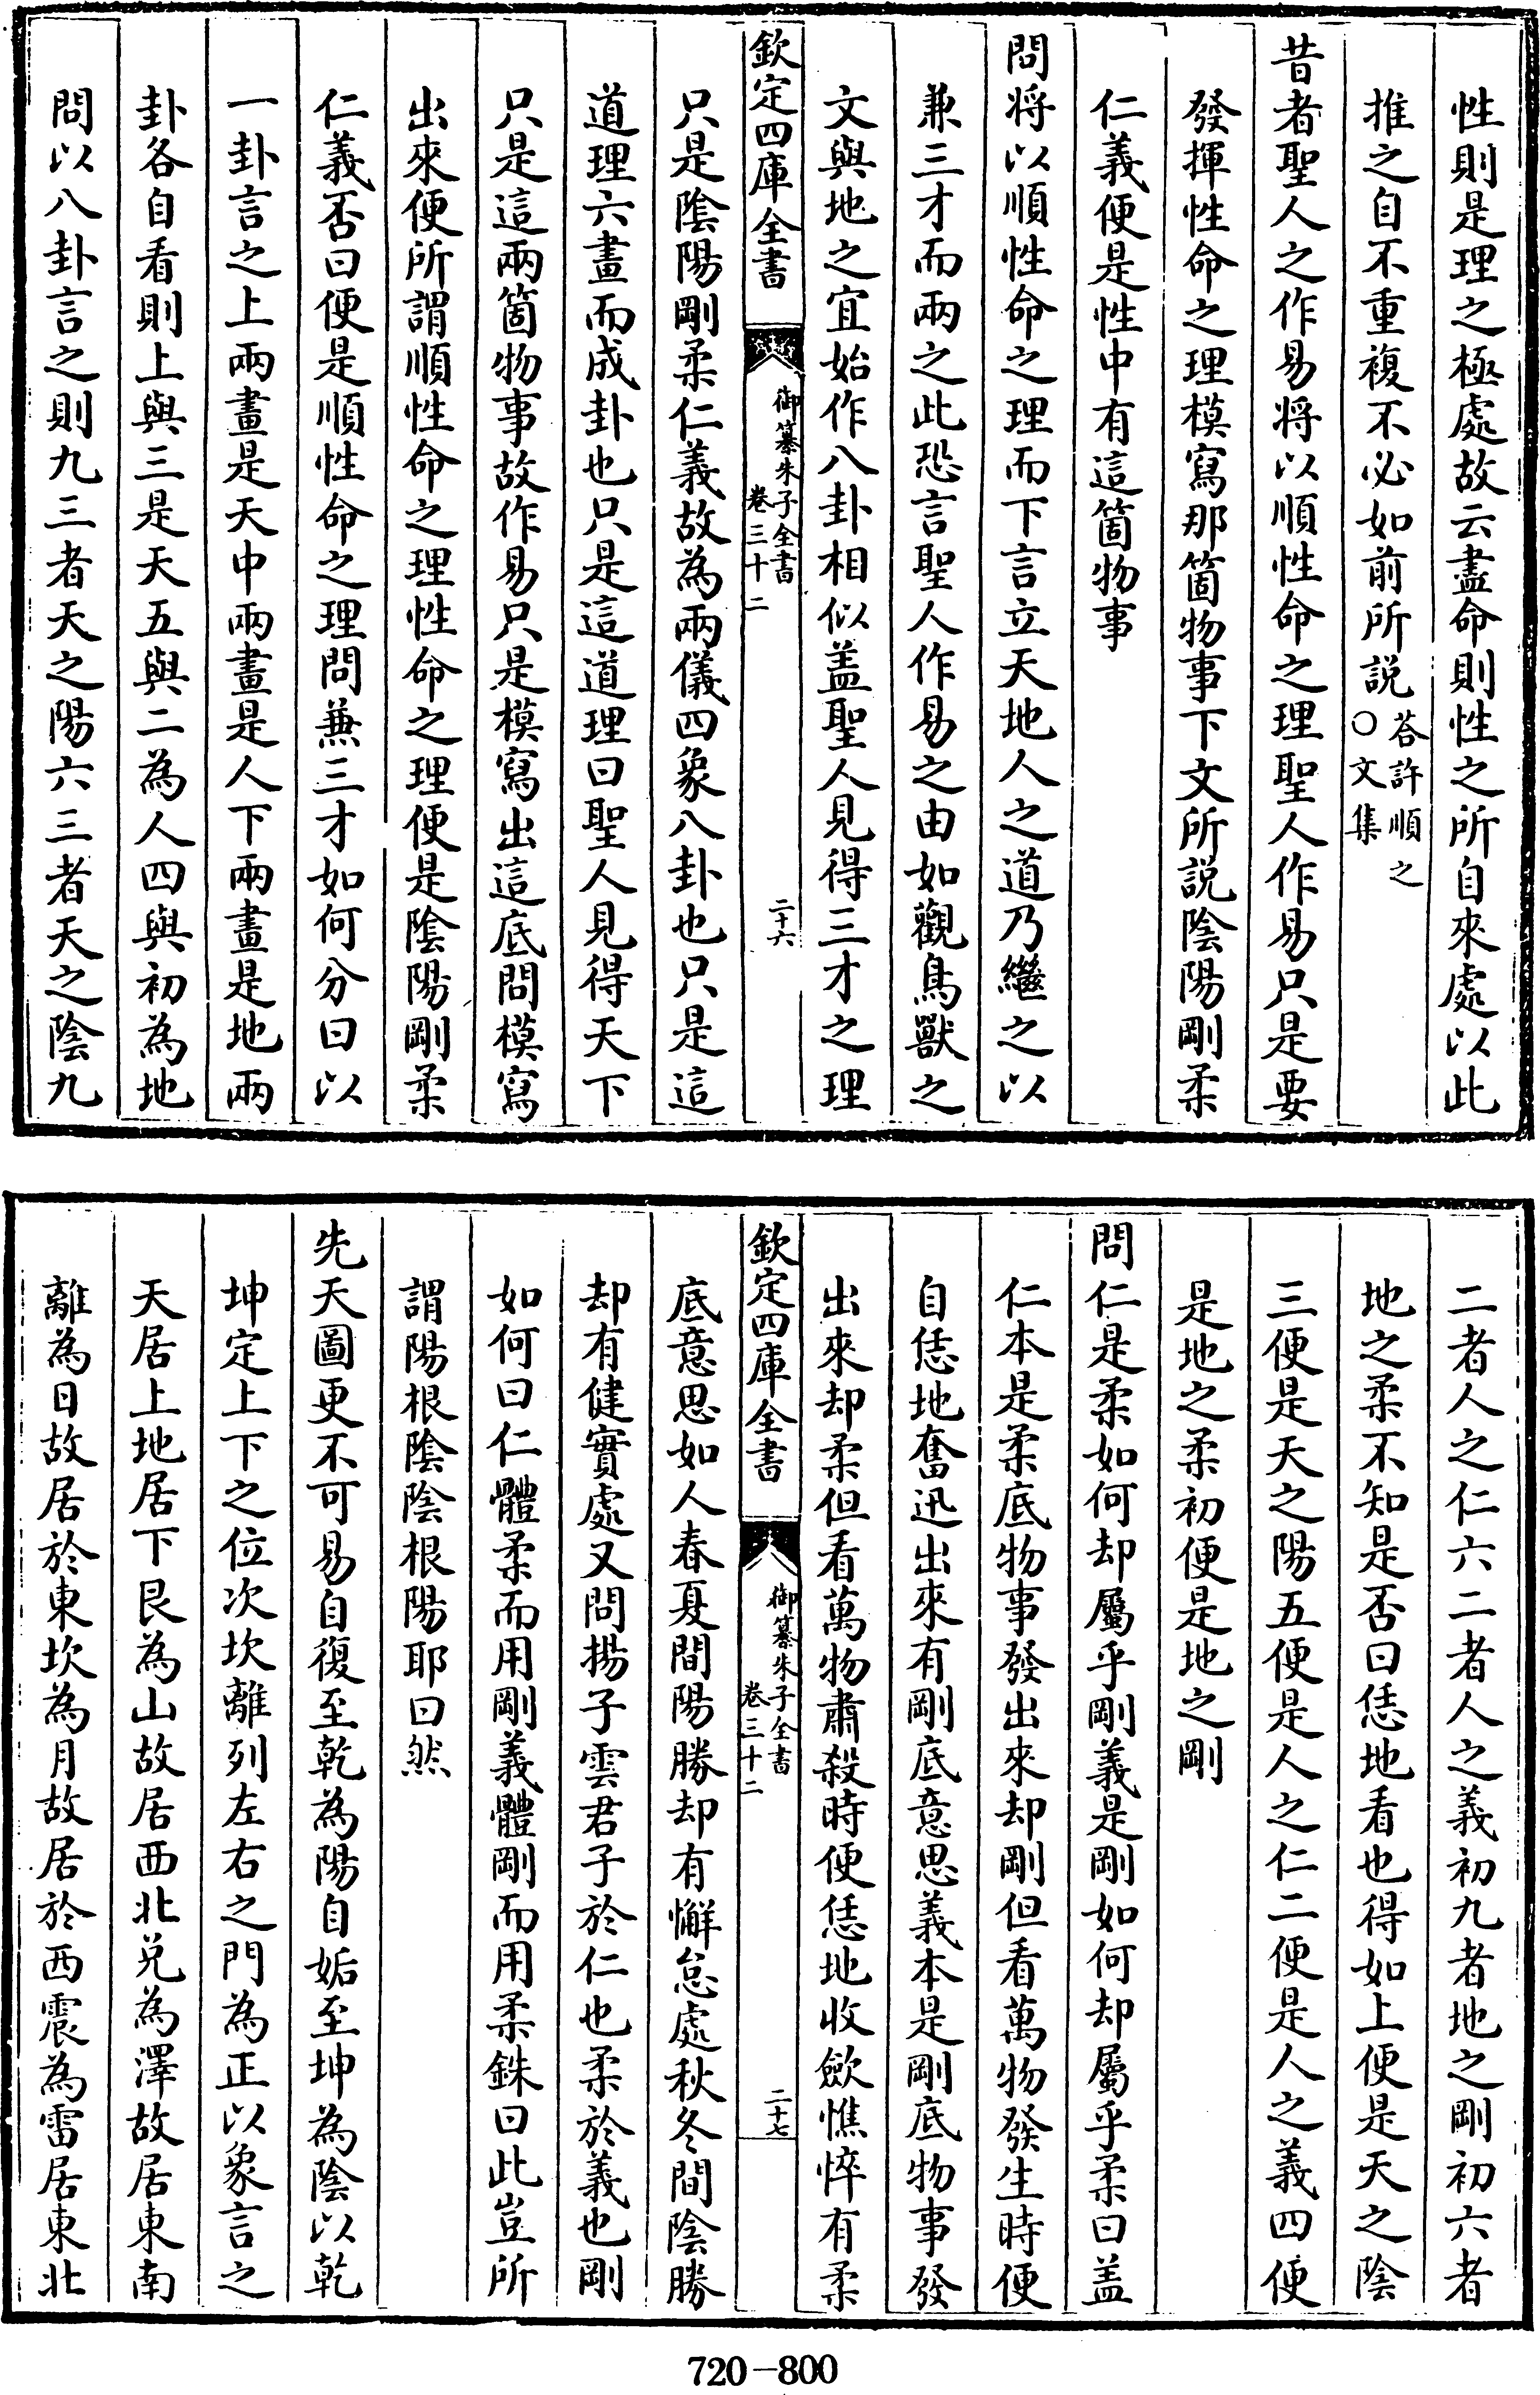 性則是理之極處故云盡命則性之所自來處以此
推之自不重複不必如前所説答許順之○文集
昔者聖人之作易将以順性命之理聖人作易只是要
發揮性命之理模寫那箇物事下文所説陰陽剛柔
仁義便是性中有這箇物事
問将以順性命之理而下言立天地人之道乃繼之以
兼三才而兩之此恐言聖人作易之由如觀鳥獸之
文與地之宜始作八卦相似盖聖人見得三才之理
欽定四庫全書 御纂朱子全書 卷三十二 二十六
只是陰陽剛柔仁義故為兩儀四象八卦也只是這
道理六畫而成卦也只是這道理曰聖人見得天下
只是這兩箇物事故作易只是模寫出這底問模寫
出來便所謂順性命之理性命之理便是陰陽剛柔
仁義否曰便是順性命之理問兼三才如何分曰以
一卦言之上兩畫是天中兩畫是人下兩畫是地兩
卦各自看則上與三是天五與二為人四與初為地
問以八卦言之則九三者天之陽六三者天之陰九
二者人之仁六二者人之義初九者地之剛初六者
地之柔不知是否曰恁地看也得如上便是天之陰
三便是天之陽五便是人之仁二便是人之義四便
是地之柔初便是地之剛
問仁是柔如何却屬乎剛義是剛如何却屬乎柔曰盖
仁本是柔底物事發出來却剛但看萬物發生時便
自恁地奮迅出來有剛底意思義本是剛底物事發
出來却柔但看萬物肅殺時便恁地收歛憔悴有柔
欽定四庫全書 御纂朱子全書 卷三十二 二十七
底意思如人春夏間陽勝却有懈怠處秋冬間陰勝
却有健實處又問揚子雲君子於仁也柔於義也剛
如何曰仁體柔而用剛義體剛而用柔銖曰此豈所
謂陽根陰陰根陽耶曰然
先天圖更不可易自復至乾為陽自姤至坤為陰以乾
坤定上下之位次坎離列左右之門為正以象言之
天居上地居下艮為山故居西北兑為澤故居東南
離為日故居於東坎為月故居於西震為雷居東北
720-800